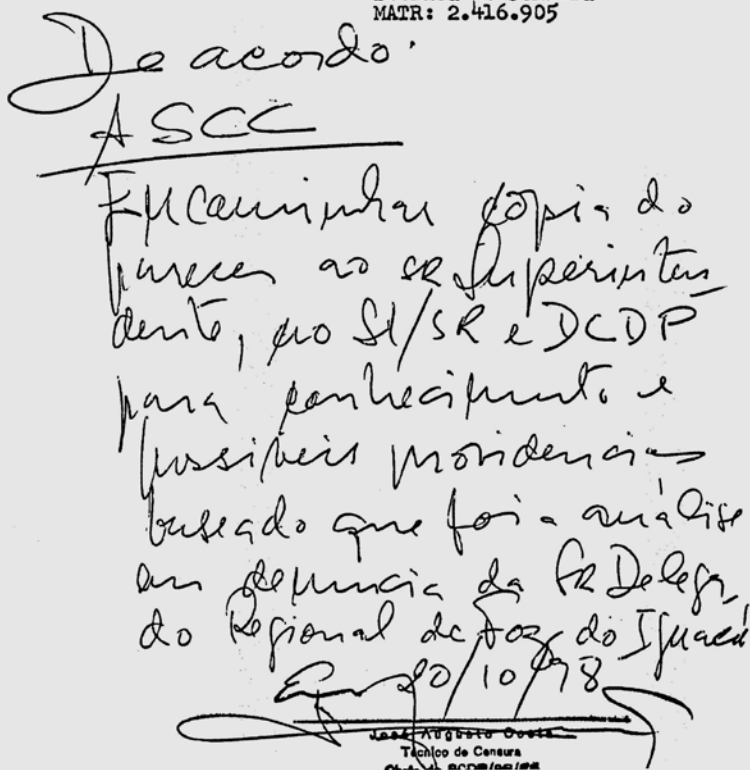 MATR: 2.416.905
De acordo.
A SCC
Encaminhar cópia do
parecer ao SR Superinten
dente, ao SI/SR e DCDP
para conhecimento e
possíveis providencias
baseado que foi a análise
em denuncia da SR Delega
do Regional de Foz do Iguacú
20/10/78
José Augusto Costa
Técnico de Censura